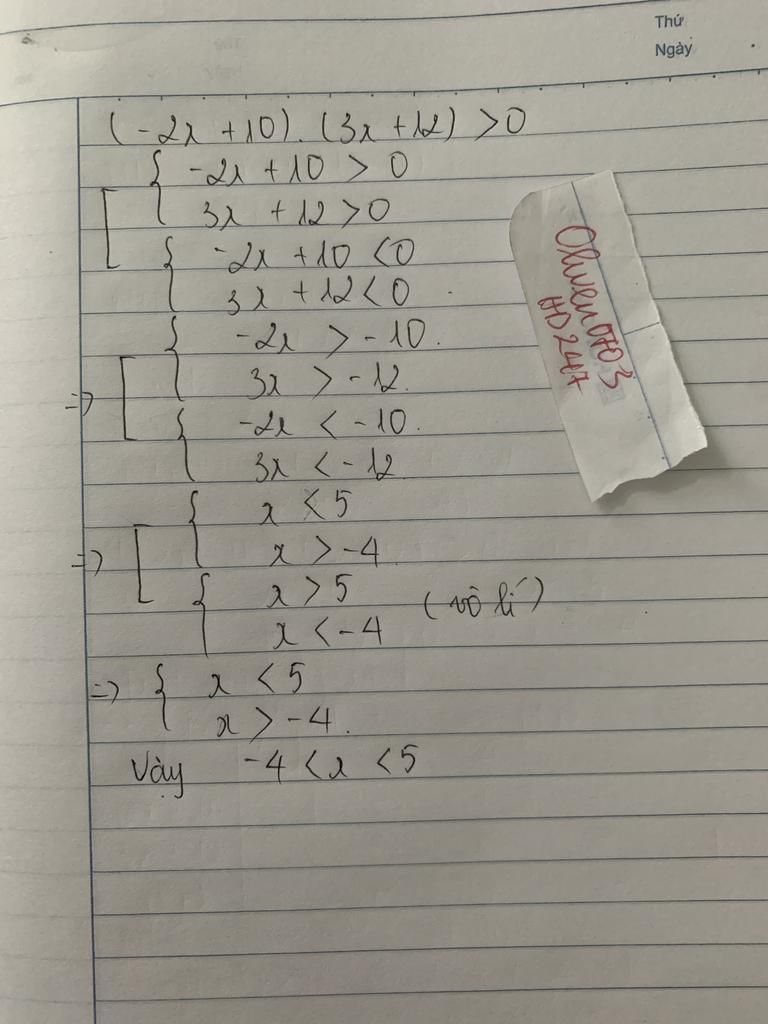 Thứ
Ngày
(-2x + 10). (3x + 12) > 0
-2x + 10 > 0
3x + 12 > 0
-2x + 10 < 0
3x + 12 < 0
-2x > -10.
=> 3x > -12.
-2x < -10.
3x < -12
x < 5
=> x > -4
x > 5 (vô lí)
x < -4
=> x < 5
x > -4.
Vậy -4 < x < 5
HD 247